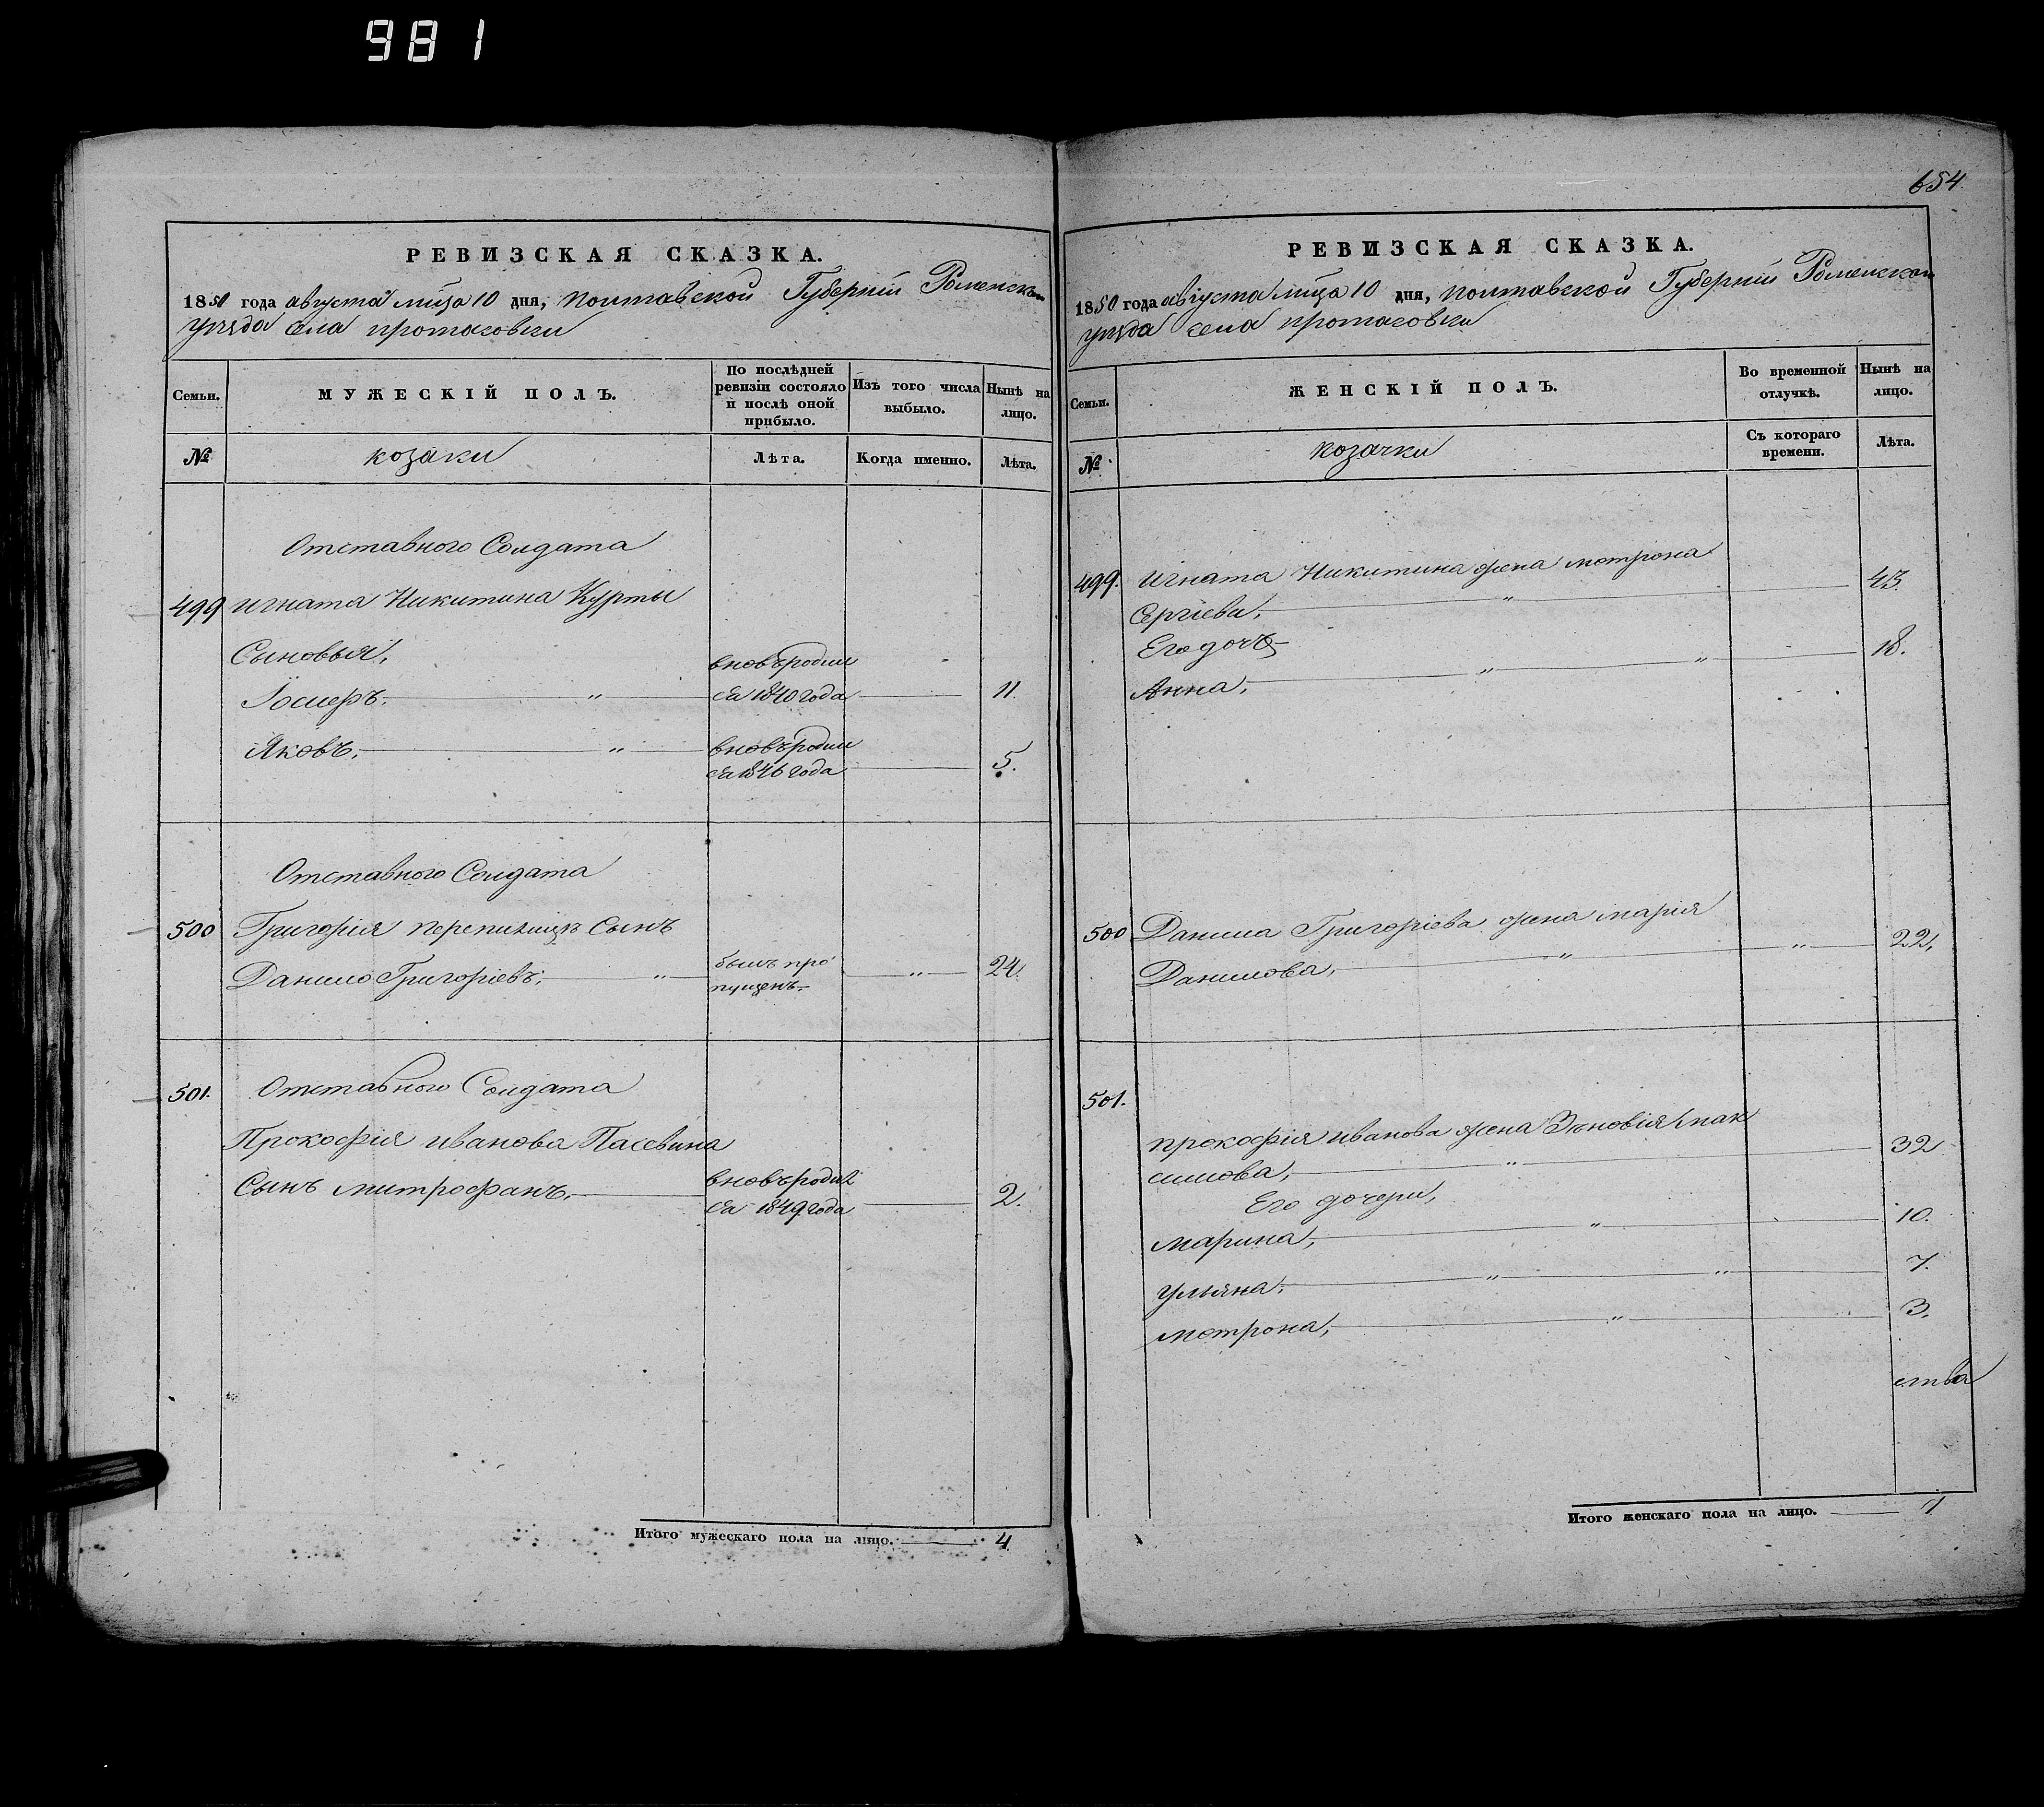 981
РЕВИЗСКАЯ СКАЗКА.
1850 года августа мѣца 10 дня, полтавской Губерніи Роменскаго
уѣзда села протасовки
Семьи.
МУЖЕСКІЙ ПОЛЪ.
По послѣдней ревизіи состояло и послѣ оной прибыло.
Изъ того числа выбыло.
Нынѣ на лицо.
№
козаки
Лѣта.
Когда именно.
Лѣта.
Отставного Солдата
499 игната Никитина Курты
Сыновья,
вновь родил
Іосифъ. " ся 1840 года 11.
Яковъ, " вновь родил
ся 1846 года 5.
Отставного Солдата
500 Григорія Сынъ
Данило Григоріевъ; " былъ про " 24.
пущенъ
501. Отставного Солдата
Прокофія иванова
Сынъ митрофанъ, вновь родил
ся 1849 года 2.
Итого мужескаго пола на лицо. 4
654.
РЕВИЗСКАЯ СКАЗКА.
1850 года августа мѣца 10 дня, полтавской Губерніи Роменскаго
уѣзда села протасовки
Семьи.
ЖЕНСКІЙ ПОЛЪ.
Во временной отлучкѣ.
Нынѣ на лицо.
№
козачки
Съ котораго времени.
Лѣта.
499. игната Никитина жена мотрона
Сергіева, " 43.
Его дочь
Анна, " " 18.
500 Данила Григоріева жена марія
Данилова, " " 22,
501.
прокофія иванова жена Зѣновія мак
симова, " 32
Его дочери,
марина, " 10.
ульяна, " " 7.
мотрона, " 3.
ства
Итого женскаго пола на лицо. 7